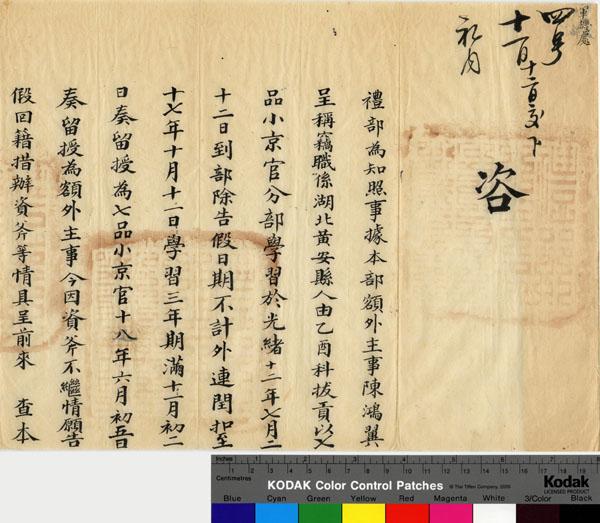 四号
十一月十二日交下
咨
禮部為知照事據本部額外主事陳鴻翼
呈稱竊職係湖北黃安縣人由乙酉科拔貢以七
品小京官分部學習於光緒十二年七月二
十二日到部除告假日期不計外連閏扣至
十七年十月十一日學習三年期滿十一月初二
日奏留授為七品小京官十八年六月初五日
奏留授為額外主事今因資斧不繼情願告
假回籍措辦資斧等情具呈前來 查本
Inches 1 2 3 4 5 6 7 8
Centimetres 1 2 3 4 5 6 7 8 9 10 11 12 13 14 15 16 17 18 19
KODAK Color Control Patches
© The Tiffen Company, 2000
Kodak
LICENSED PRODUCT
Blue Cyan Green Yellow Red Magenta White 3/Color Black